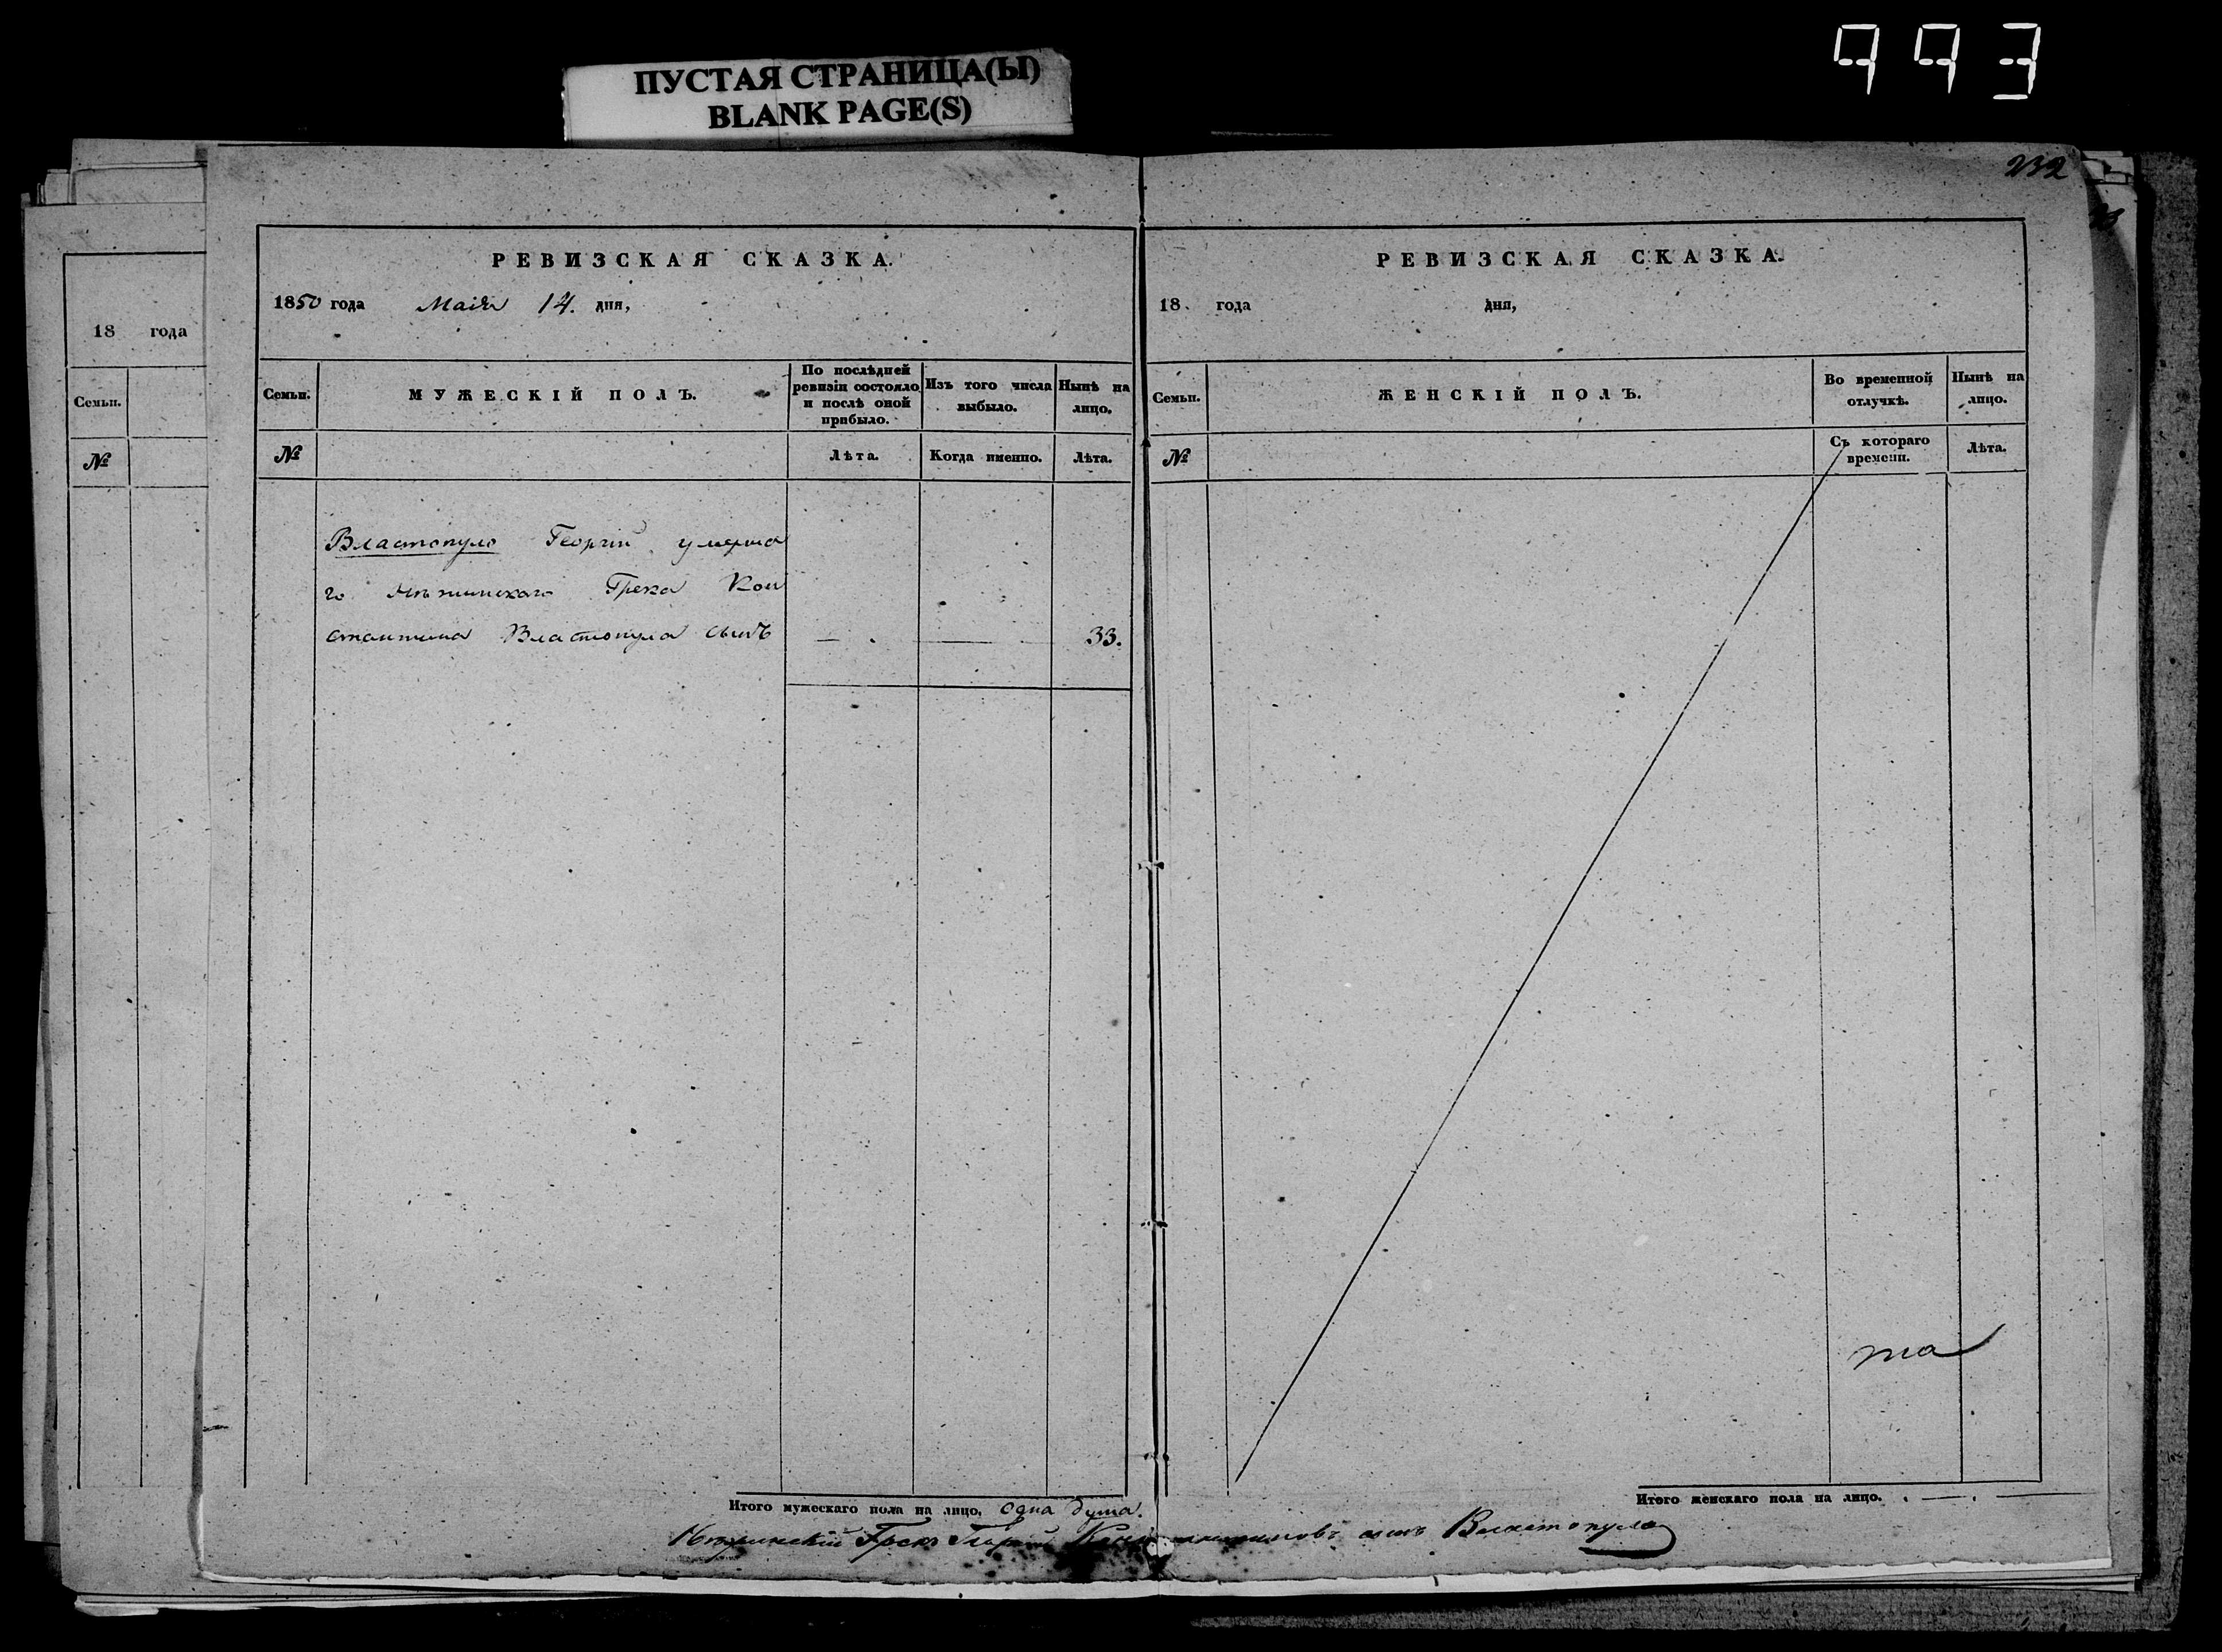 ПУСТАЯ СТРАНИЦА(Ы)
BLANK PAGE(S)
993
232
18 года
Семьи.
№
РЕВИЗСКАЯ СКАЗКА.
1850 года Маія 14. дня,
Семьи.
МУЖЕСКІЙ ПОЛЪ.
По послѣдней ревизіи состояло и послѣ оной прибыло.
Изъ того числа выбыло.
Нынѣ на лицо.
№
Лѣта.
Когда именно.
Лѣта.
Властопуло Георгій умерша
го Нѣжинскаго Грека Кон
стантина Властопула сынъ — — 33.
Итого мужескаго пола на лицо, одна душа.
РЕВИЗСКАЯ СКАЗКА.
18 года дня,
Семьи.
ЖЕНСКІЙ ПОЛЪ.
Во временной отлучкѣ.
Нынѣ на лицо.
№
Съ котораго времени.
Лѣта.
та
Итого женскаго пола на лицо. —
Нѣжинскій Грекъ Георгій Константиновъ сынъ Властопуло